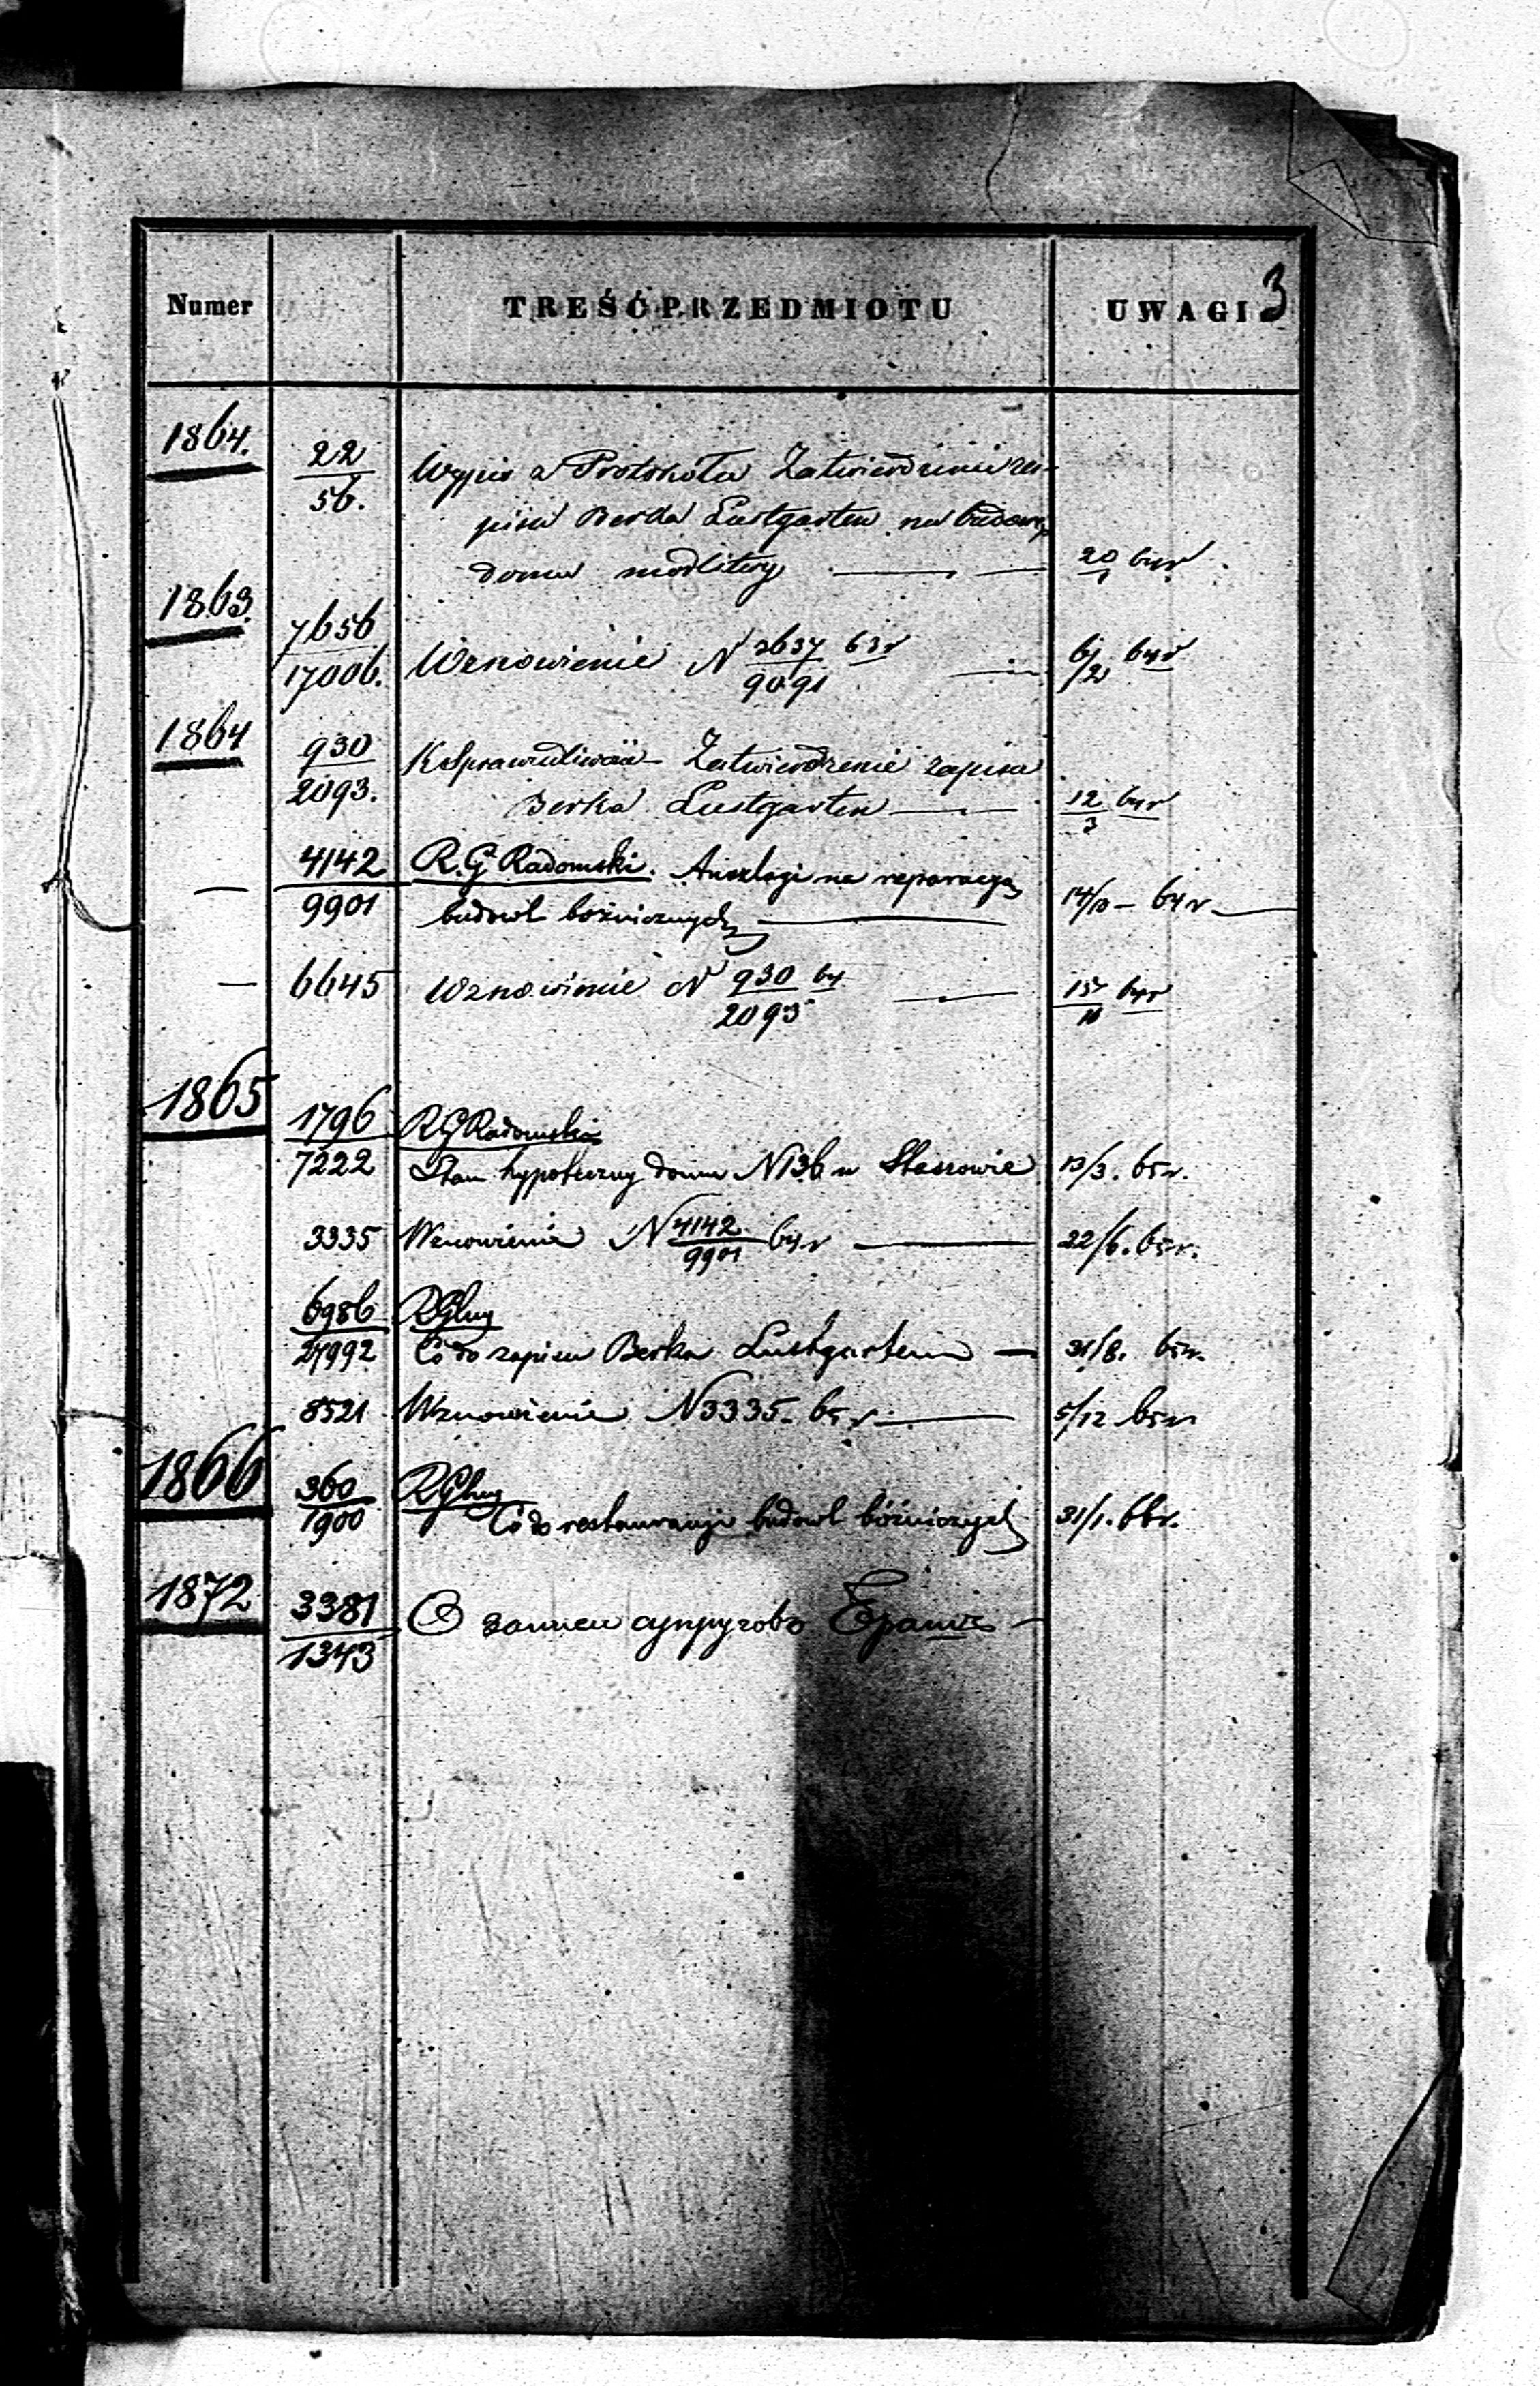 3
Numer TREŚĆ PRZEDMIOTU UWAGI
1864.
22/56. Wypis z Protokołu Zatwierdzenie za-
pisu Berka Lustgarten na budowę
domu modlitwy 20/1 64r
1863.
7656/17006. Wznowienie N 3637/9091 63r 6/2 64r
1864
930/2093. KSprawiedliwości Zatwierdzenie zapisu
Berka Lustgarten 12/3 64r
— 4142/9901 R.G. Radomski. Anszlagi na reparacyą
budowl bożnicznych 14/10 – 64 r
— 6645 Wznowienie N 930/2093 64 15/10 64r
1865
1796/7222 RG Radomski
Stan hypoteczny domu N 136 w Staszowie 13/3. 65r.
3335 Wznowienie N 4142/9901 64r 22/6. 65r.
6986/27992 RGlny
Co do zapisu Berka Lustgarten 31/8. 65r.
8521 Wznowienie N 3335. 65 r 5/12 65r
1866
360/1900 RGlny
Co do restauracyi budowl bóżniczych 31/1. 66r.
1872
3381/1343 О записи супругов